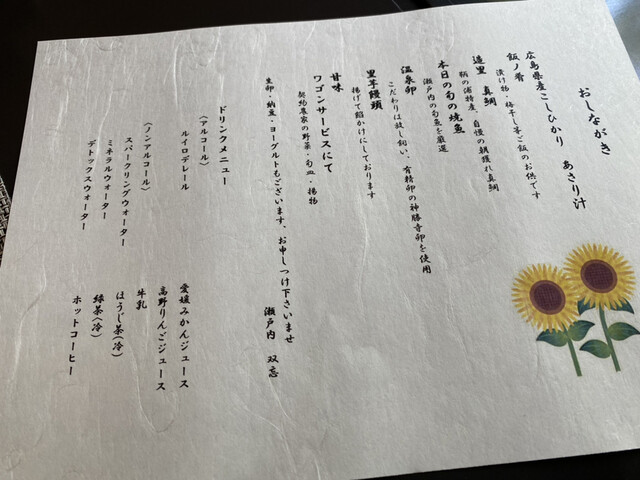 おしながき
広島県産こしひかり　あさり汁
飯ノ肴
漬け物・梅干し等ご飯のお供です
造里　真鯛
鞆の浦特産　自慢の朝獲れ真鯛
本日の旬の焼魚
瀬戸内の旬魚を厳選
温泉卵
こだわりは放し飼い、有精卵の神勝寺卵を使用
里芋饅頭
揚げて餡かけにしております
甘味
ワゴンサービスにて
契約農家の野菜・旬皿・揚物
生卵・納豆・ヨーグルトもございます、お申しつけ下さいませ
瀬戸内　双忘
ドリンクメニュー
〈アルコール〉
ルイロデレール
〈ノンアルコール〉
スパークリングウォーター
ミネラルウォーター
デトックスウォーター
愛媛みかんジュース
高野りんごジュース
牛乳
ほうじ茶(冷)
緑茶(冷)
ホットコーヒー